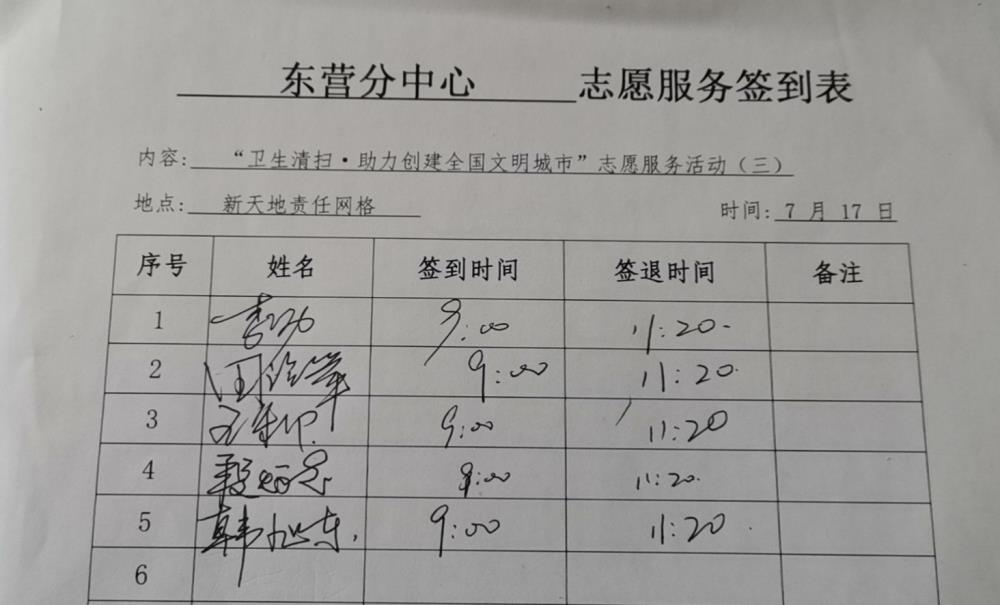 东营分中心 志愿服务签到表
内容: “卫生清扫·助力创建全国文明城市”志愿服务活动(三)
地点: 新天地责任网格 时间: 7 月 17 日
序号 姓名 签到时间 签退时间 备注
1 9:00 11:20
2 9:00 11:20
3 9:00 11:20
4 9:00 11:20
5 韩旭东 9:00 11:20
6